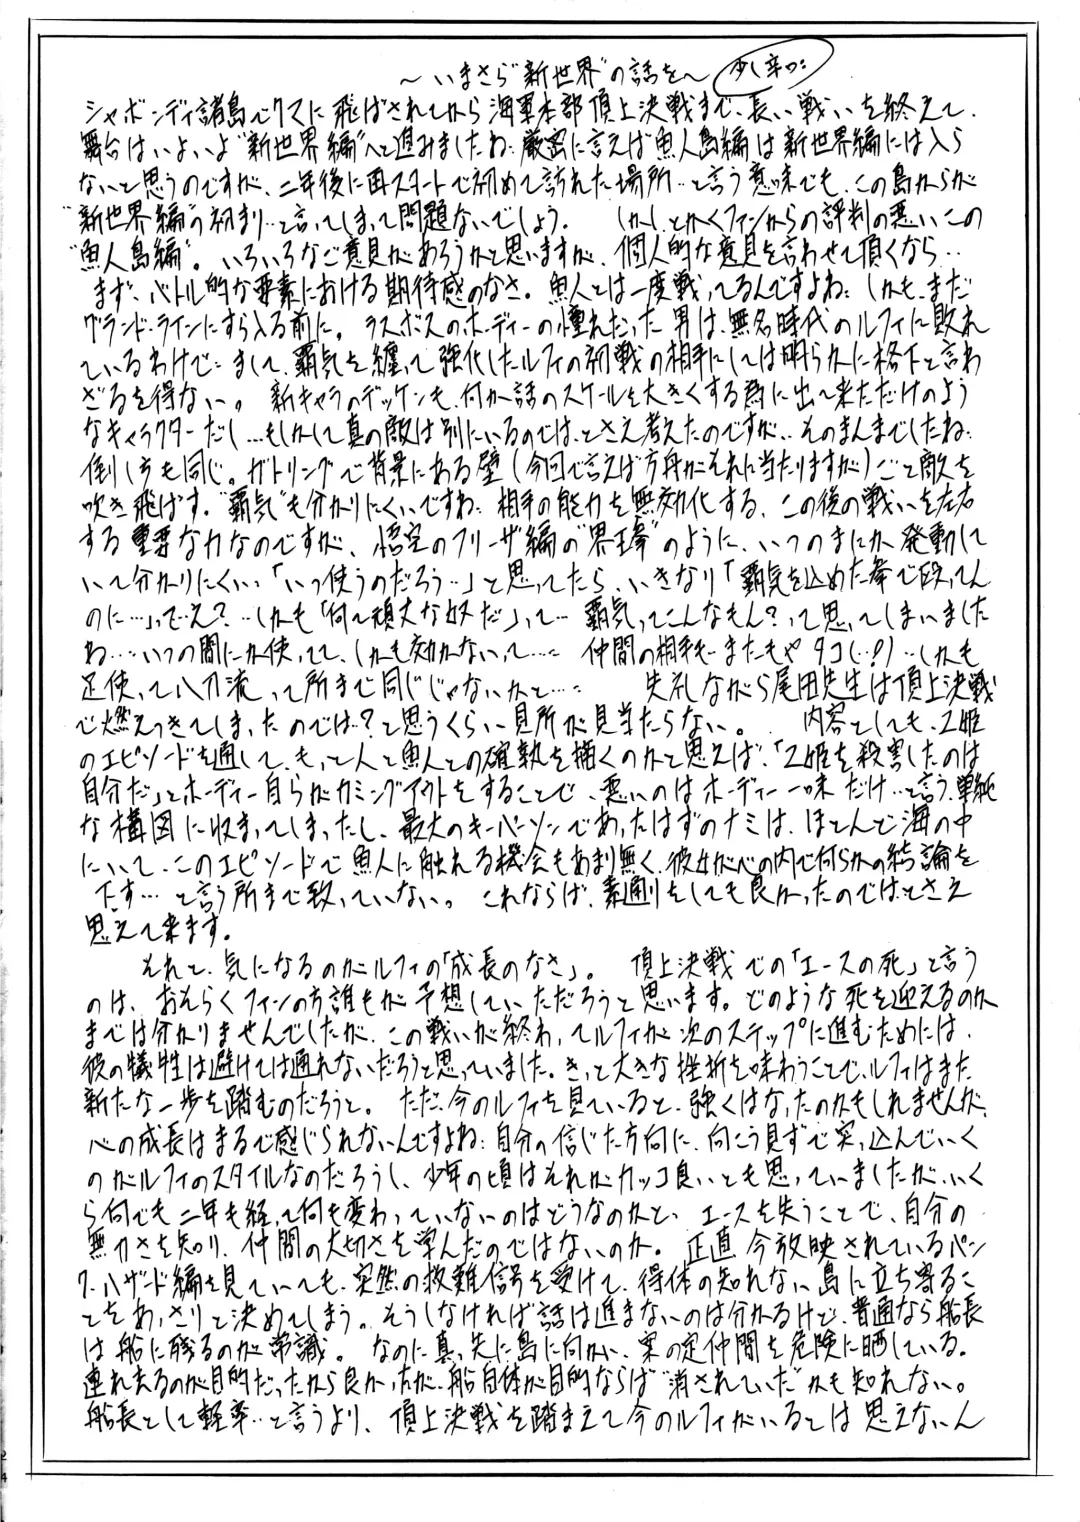 ～いまさら"新世界"の話を～ 少し辛口:
シャボンディ諸島でクマに飛ばされてから海軍本部頂上決戦まで、長い戦いを終えて、
舞台はいよいよ"新世界編"へと進みましたね: 厳密に言えば魚人島編は新世界編には入ら
ないと思うのですが、二年後に再スタートで初めて訪れた場所‥と言う意味でも、この島からが
"新世界編"の初まり‥と言ってしまって問題ないでしょう。 しかし、とかくファンからの評判の悪いこの
"魚人島編"。いろいろなご意見があろうかと思いますが、個人的な意見を言わせて頂くなら‥
まず、バトル的な要素における期待感のなさ。魚人とは一度戦ってるんですよね: しかも、まだ
グランド・ラインにすら入る前に。ラスボスのホーディーの憧れだった男は、無名時代のルフィに敗れ
ているわけで: まして、覇気を纏って強化したルフィの初戦の相手にしては明らかに格下と言わ
ざるを得ない。 新キャラのデッケンも、何か話のスケールを大きくする為に出て来ただけのよう
なキャラクターだし…もしかして真の敵は別にいるのでは、とさえ考えたのですが‥そのまんまでしたね:
倒し方も同じ。ガトリングで背景にある壁(今回で言えば方舟がそれに当たりますが)ごと敵を
吹き飛ばす。"覇気"も分かりにくいですね: 相手の能力を無効化する、この後の戦いを左右
する重要な力なのですが、悟空のフリーザ編の"界王拳"のように、いつのまにか発動して
いて分かりにくい、「いつ使うのだろう‥」と思ってたら、いきなり「覇気を込めた拳で殴ってん
のに…」って‥え?‥しかも「何て頑丈な奴だ」って…覇気ってこんなもん?って思ってしまいました
ね…いつの間にか使ってて、しかも効かないって…: 仲間の相手も‥またもやタコ(…?)‥しかも
足使って八刀流って所まで同じじゃないかと…: 失礼ながら尾田先生は頂上決戦
で燃えつきてしまったのでは?と思うくらい見所が見当たらない。 内容としても、乙姫
のエピソードを通して、もっと人と魚人との確執を描くのかと思えば、「乙姫を殺害したのは
自分だ」とホーディー自らがカミングアウトをすることで、悪いのはホーディー一味だけ‥と言う、単純
な構図に収まってしまったし、最大のキーパーソンであったはずのナミは、ほとんど海の中
にいて、このエピソードで魚人に触れる機会もあまり無く、彼女が心の内で何らかの結論を
下す…と言う所まで致っていない。 これならば、素通りをしても良かったのではとさえ
思えて来ます。
それと、気になるのがルフィの「成長のなさ」。 頂上決戦での「エースの死」と言う
のは、おそらくファンの方誰もが予想していただろうと思います。どのような死を迎えるのか
までは分かりませんでしたが、この戦いが終わってルフィが次のステップに進むためには、
彼の犠牲は避けては通れないだろうと思っていました。きっと大きな挫折を味わうことで、ルフィはまた
新たな一歩を踏むのだろうと。 ただ、今のルフィを見ていると、強くはなったのかもしれませんが、
心の成長はまるで感じられないんですよね: 自分の信じた方向に、向こう見ずで突っ込んでいく
のがルフィのスタイルなのだろうし、少年の頃はそれがカッコ良いとも思っていましたが、いく
ら何でも二年も経って何も変わっていないのはどうなのかと、 エースを失うことで、自分の
無力さを知り、仲間の大切さを学んだのではないのか。 正直 今放映されているパン
ク・ハザード編を見ていても、突然の救難信号を受けて、得体の知れない島に立ち寄るこ
とをあっさりと決めてしまう。そうしなければ話は進まないのは分かるけど、普通なら船長
は船に残るのが常識。 なのに真っ先に島に向かい、案の定仲間を危険に晒している。
連れ去るのが目的だったから良かったが、船自体が目的ならば"消されていた"かも知れない。
船長として軽率‥と言うより、頂上決戦を踏まえて今のルフィがいるとは思えないん
24